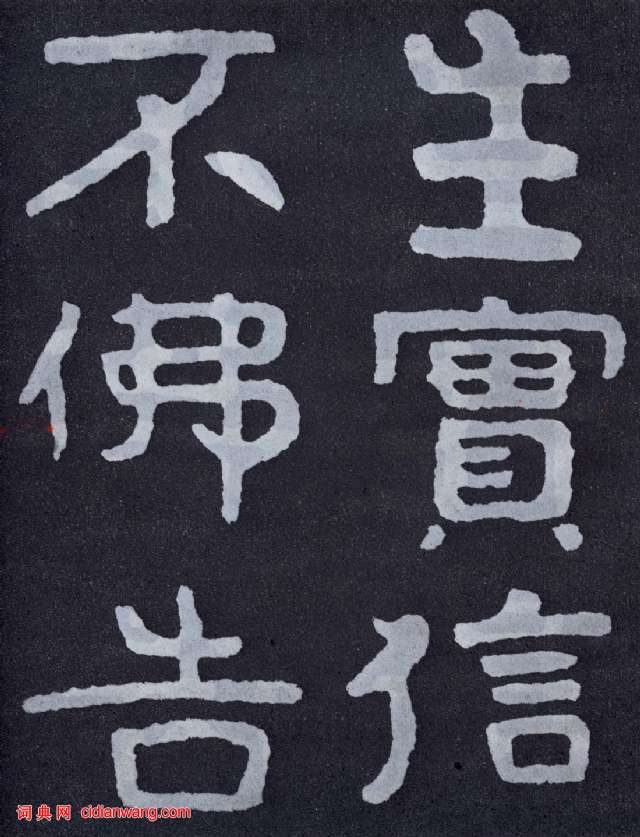 生實信
不佛告
词典网 cidianwang.com